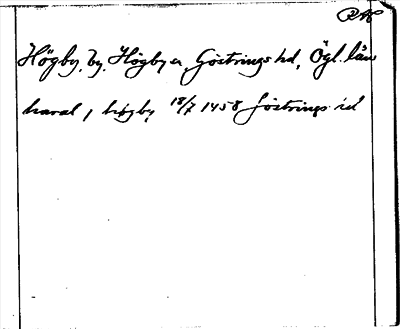 Högby, by, Högby sn, Göstrings hd, Ögl. län
haral j høgby 18/7 1458 Göstrings hd